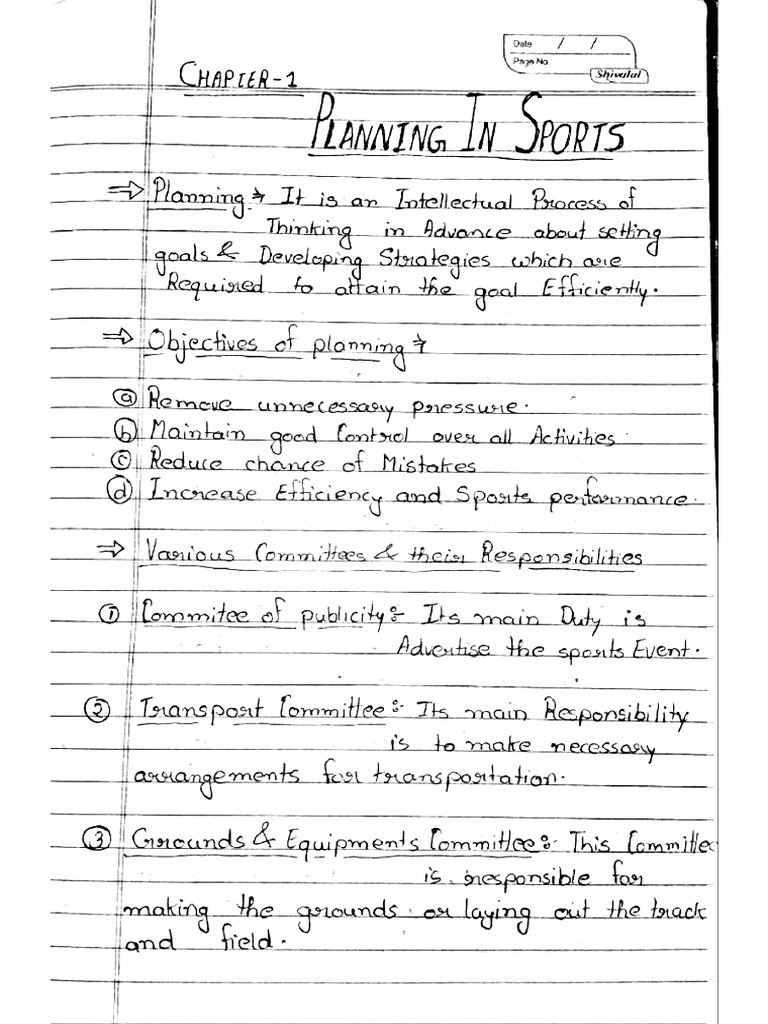 Date / /
Page No.
Shivalal
CHAPTER-1
PLANNING IN SPORTS
⇒ Planning :→ It is an Intellectual Process of
Thinking in Advance about setting
goals & Developing Strategies which are
Required to attain the goal Efficiently.
⇒ Objectives of planning :→
ⓐ Remove unnecessary pressure.
ⓑ Maintain good Control over all Activities.
ⓒ Reduce chance of Mistakes
ⓓ Increase Efficiency and Sports performance.
⇒ Various Committees & their Responsibilities
① Commitee of publicity:- Its main Duty is
Advertise the sports Event.
② Transport Committee:- Its main Responsibility
is to make necessary
arrangements for transportation.
③ Grounds & Equipments Committee:- This Committee
is responsible for
making the grounds or laying out the track
and field.